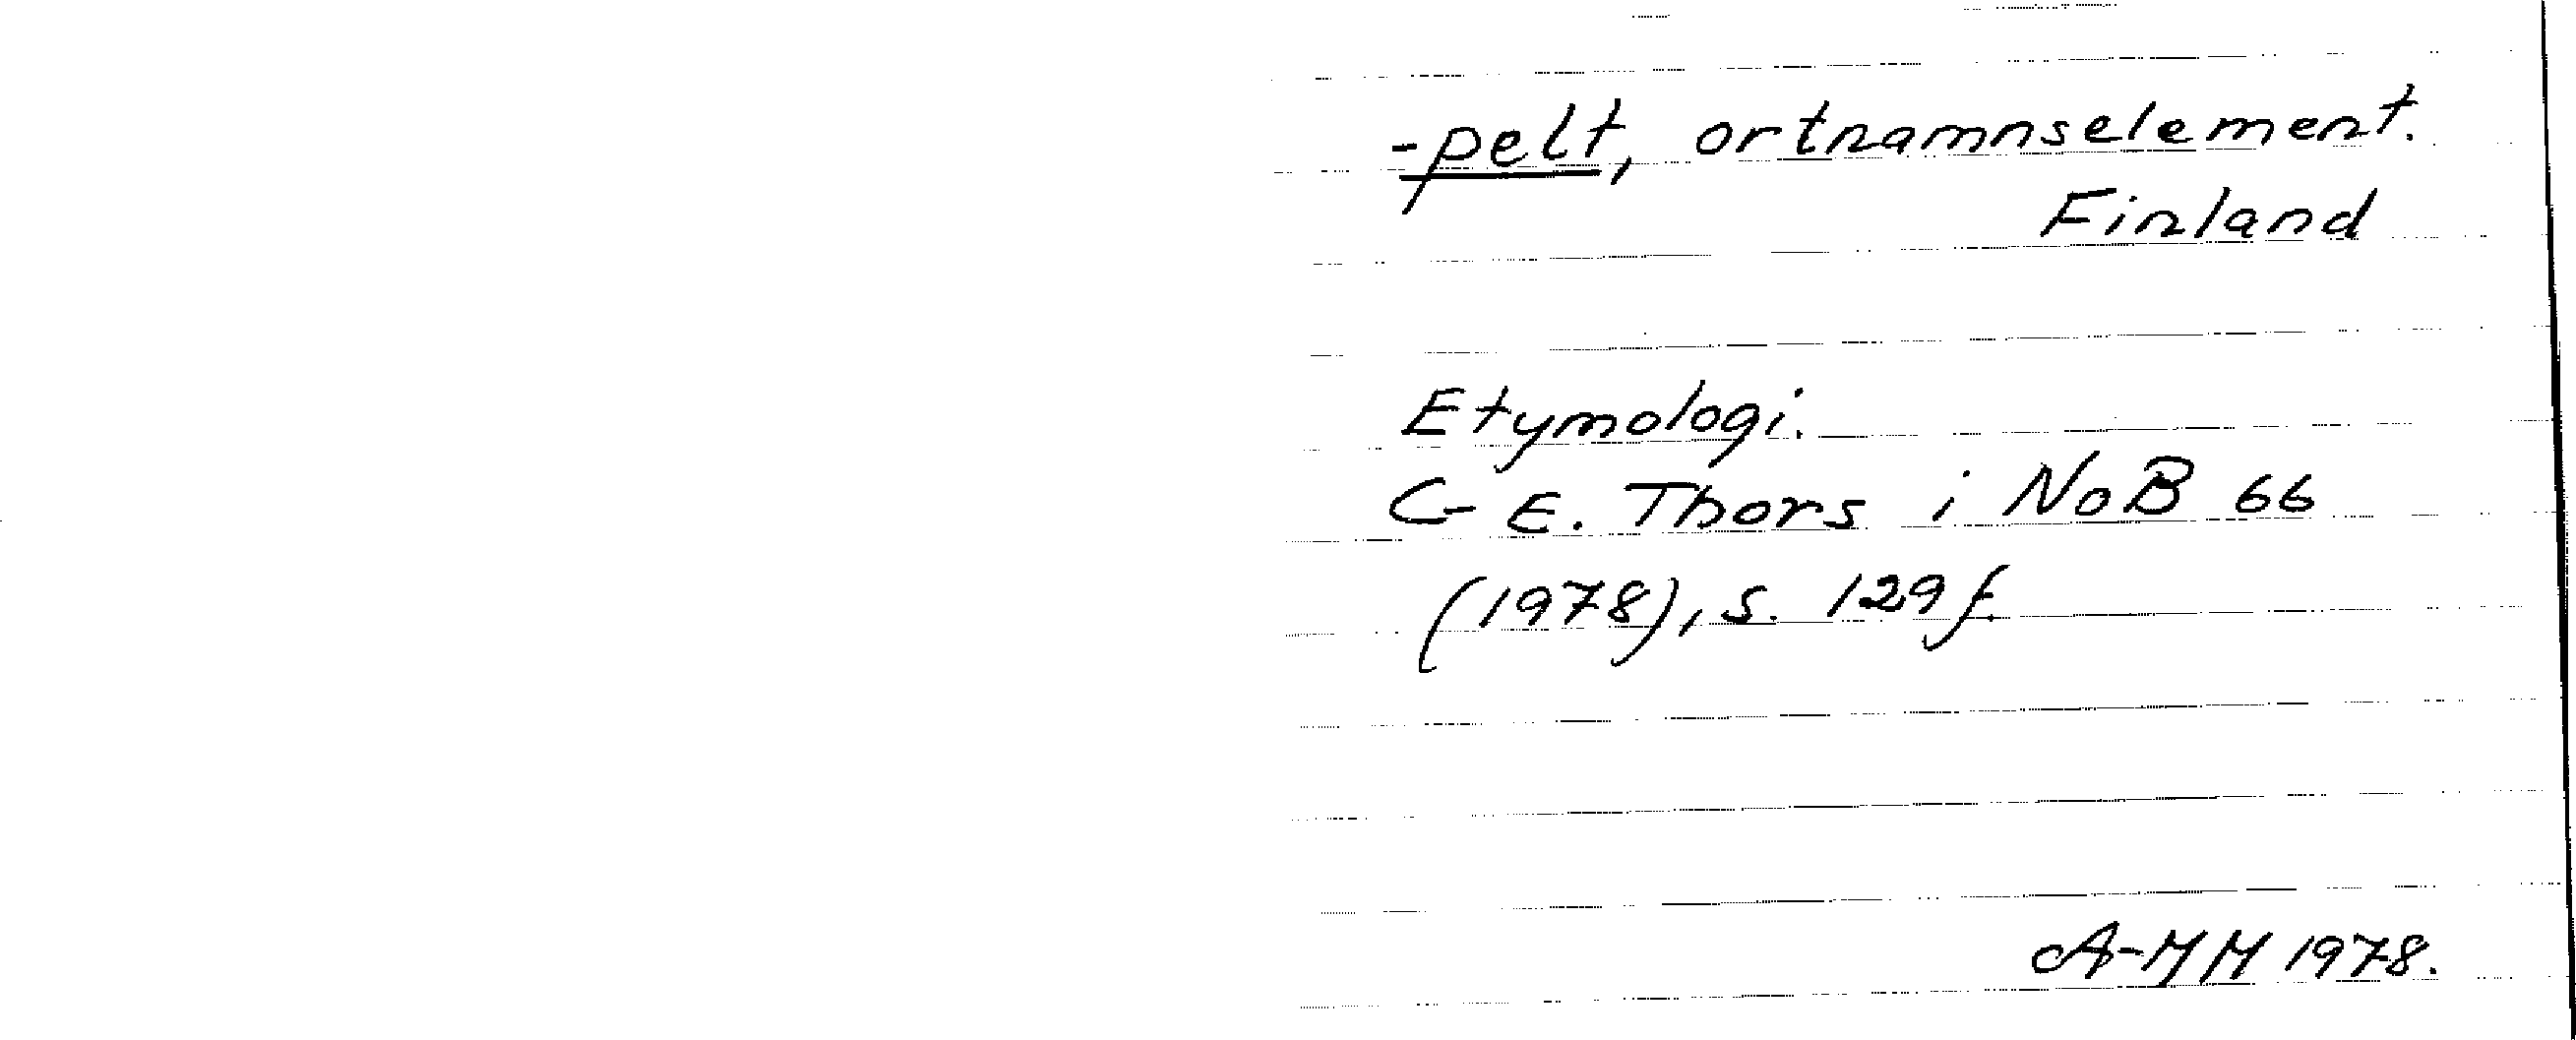 -pelt, ortnamnselement.
Finland
Etymologi.
C-E. Thors i NoB 66
(1978), s. 129 f.
A-MM 1978.